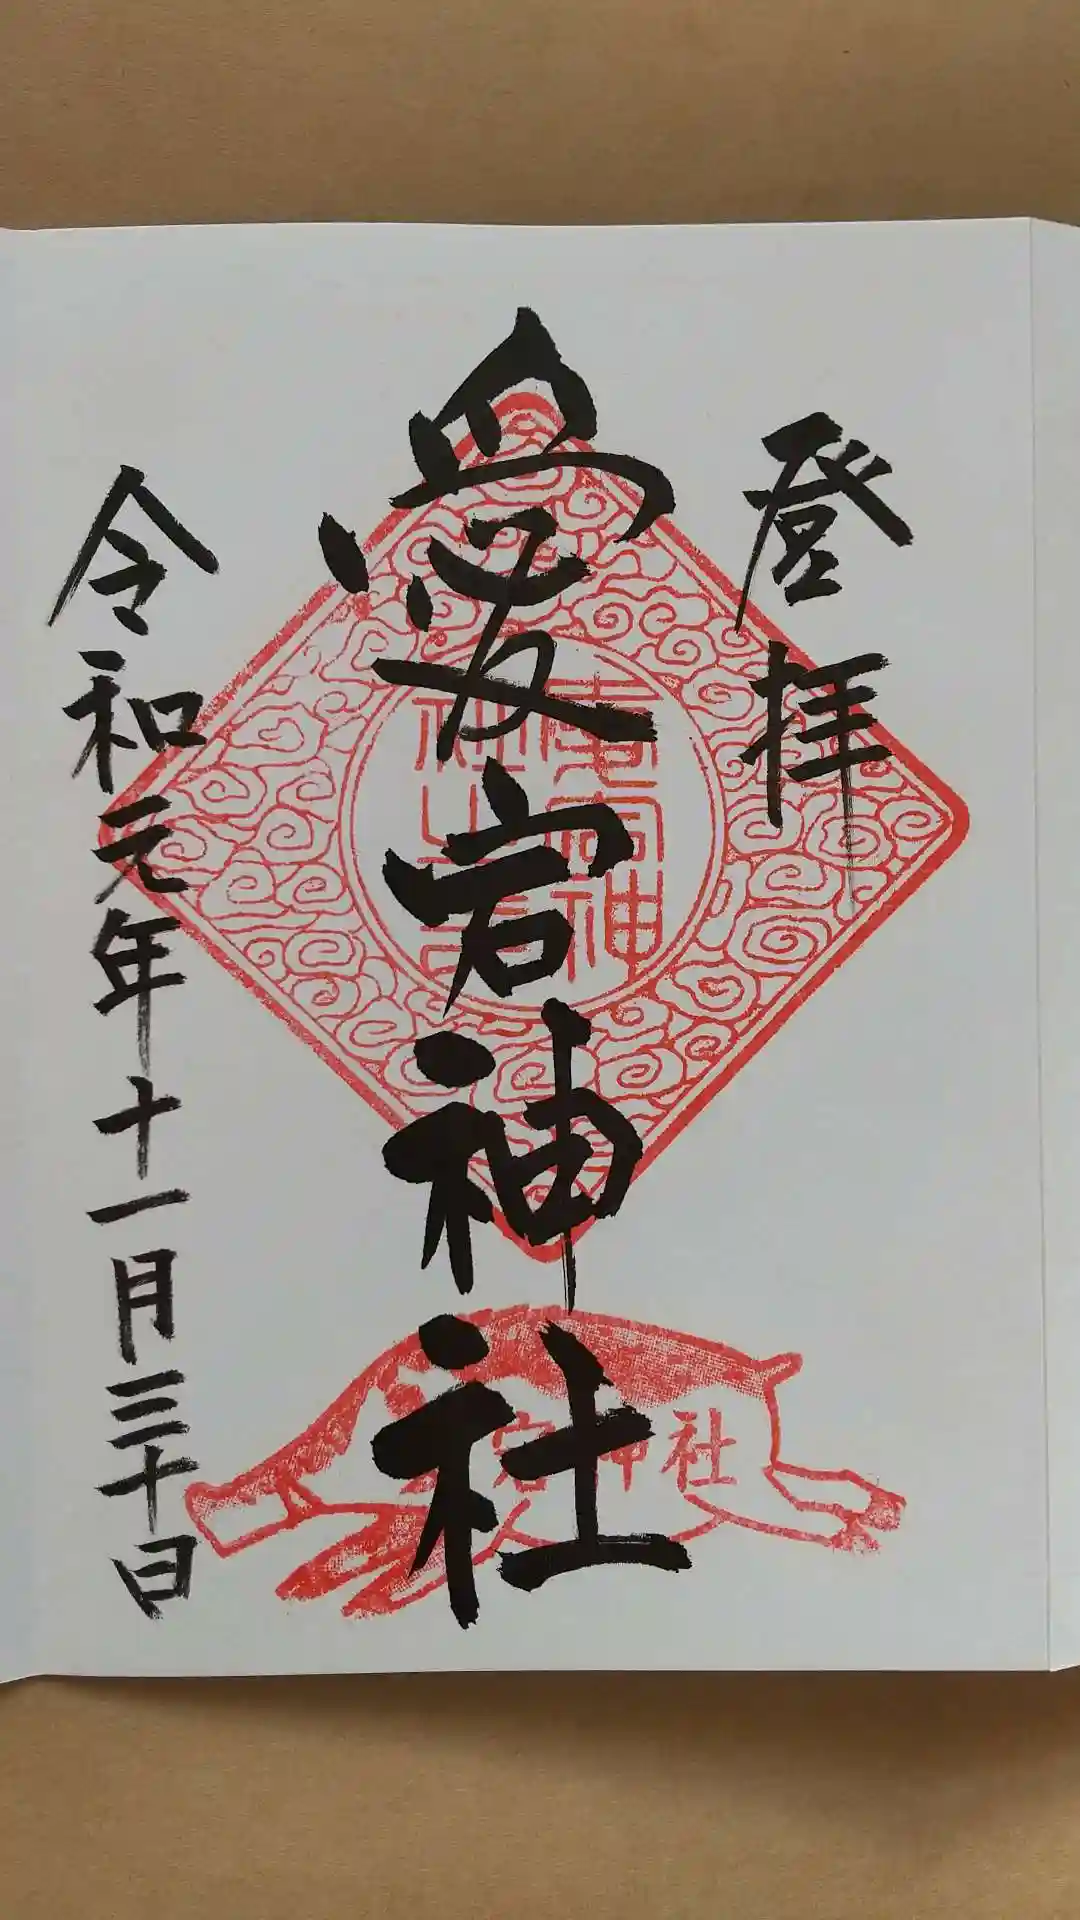 登拝
愛宕神社
令和元年十一月三十日
宕神社